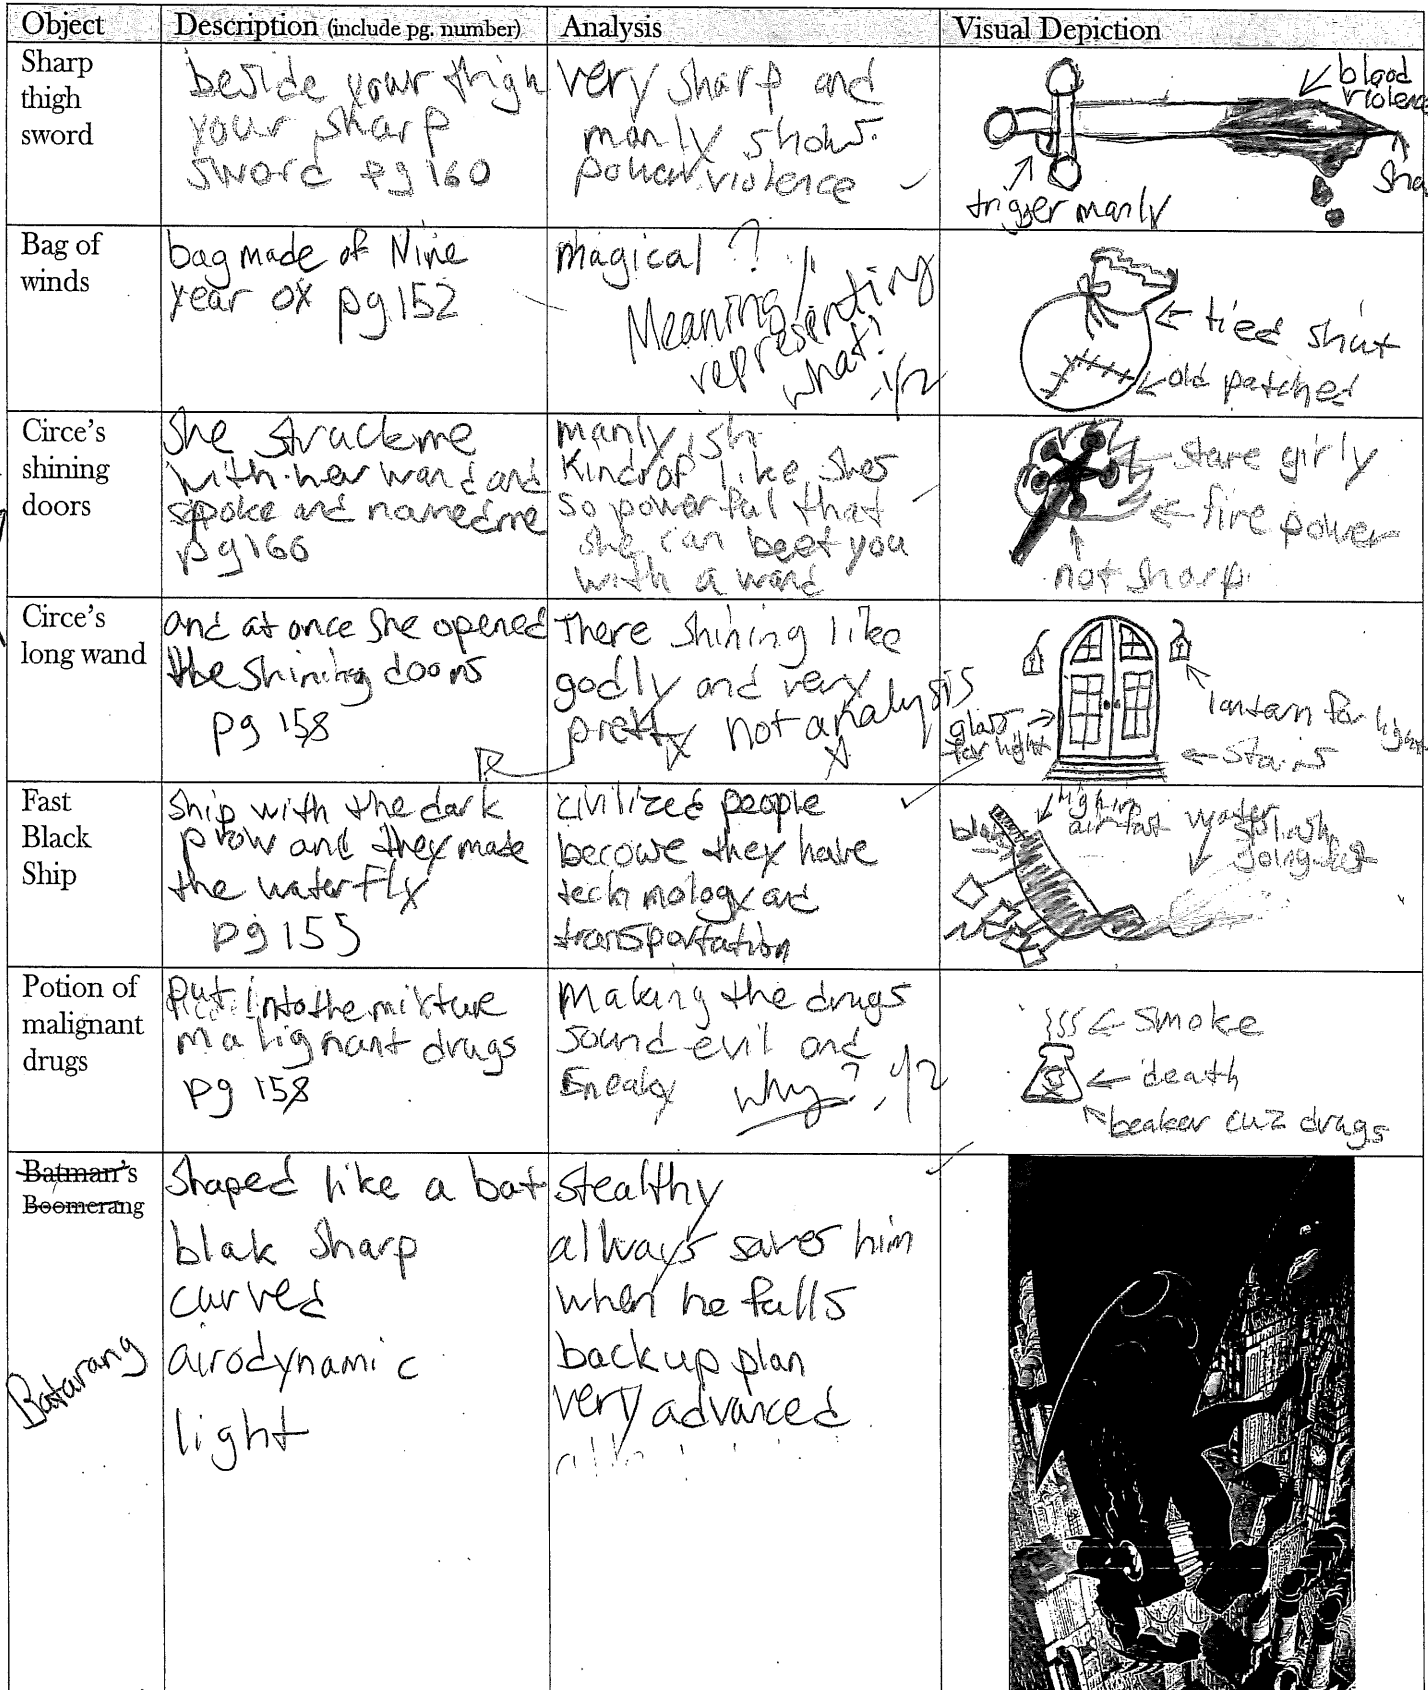 Object Description (include pg. number) Analysis Visual Depiction
Sharp
thigh
sword
beside your thigh
your sharp
sword pg 160
very sharp and
manly shows
power violence
blood
violence
trigger manly
Sha
Bag of
winds
bag made of Nine
year ox pg 152
magical ?
Meaning/
representing
what?
-1/2
tied shut
old patched
Circe's
shining
doors
She struck me
with her wand and
spoke and named me
pg 166
manly ish
Kind of like shes
so powerful that
she can beet you
with a wand
stare girly
fire power
not sharp
Circe's
long wand
and at once she opened
the shining doors
pg 158
There shining like
godly and very
pretty
not analysis
glass
for light
lantern for light
stairs
Fast
Black
Ship
ship with the dark
prow and they made
the water fly
pg 155
civilized people
becouse they have
technology and
transportation
black
high in
air fast
water
splash
going fast
Potion of
malignant
drugs
put into the mixture
malignant drugs
pg 158
Making the drugs
sound evil and
sneaky
why? -1/2
smoke
death
beaker cuz drugs
Batman's
Boomerang
Batarang
Shaped like a bat
blak sharp
curved
airodynamic
light
stealthy
always saves him
when he falls
backup plan
very advanced